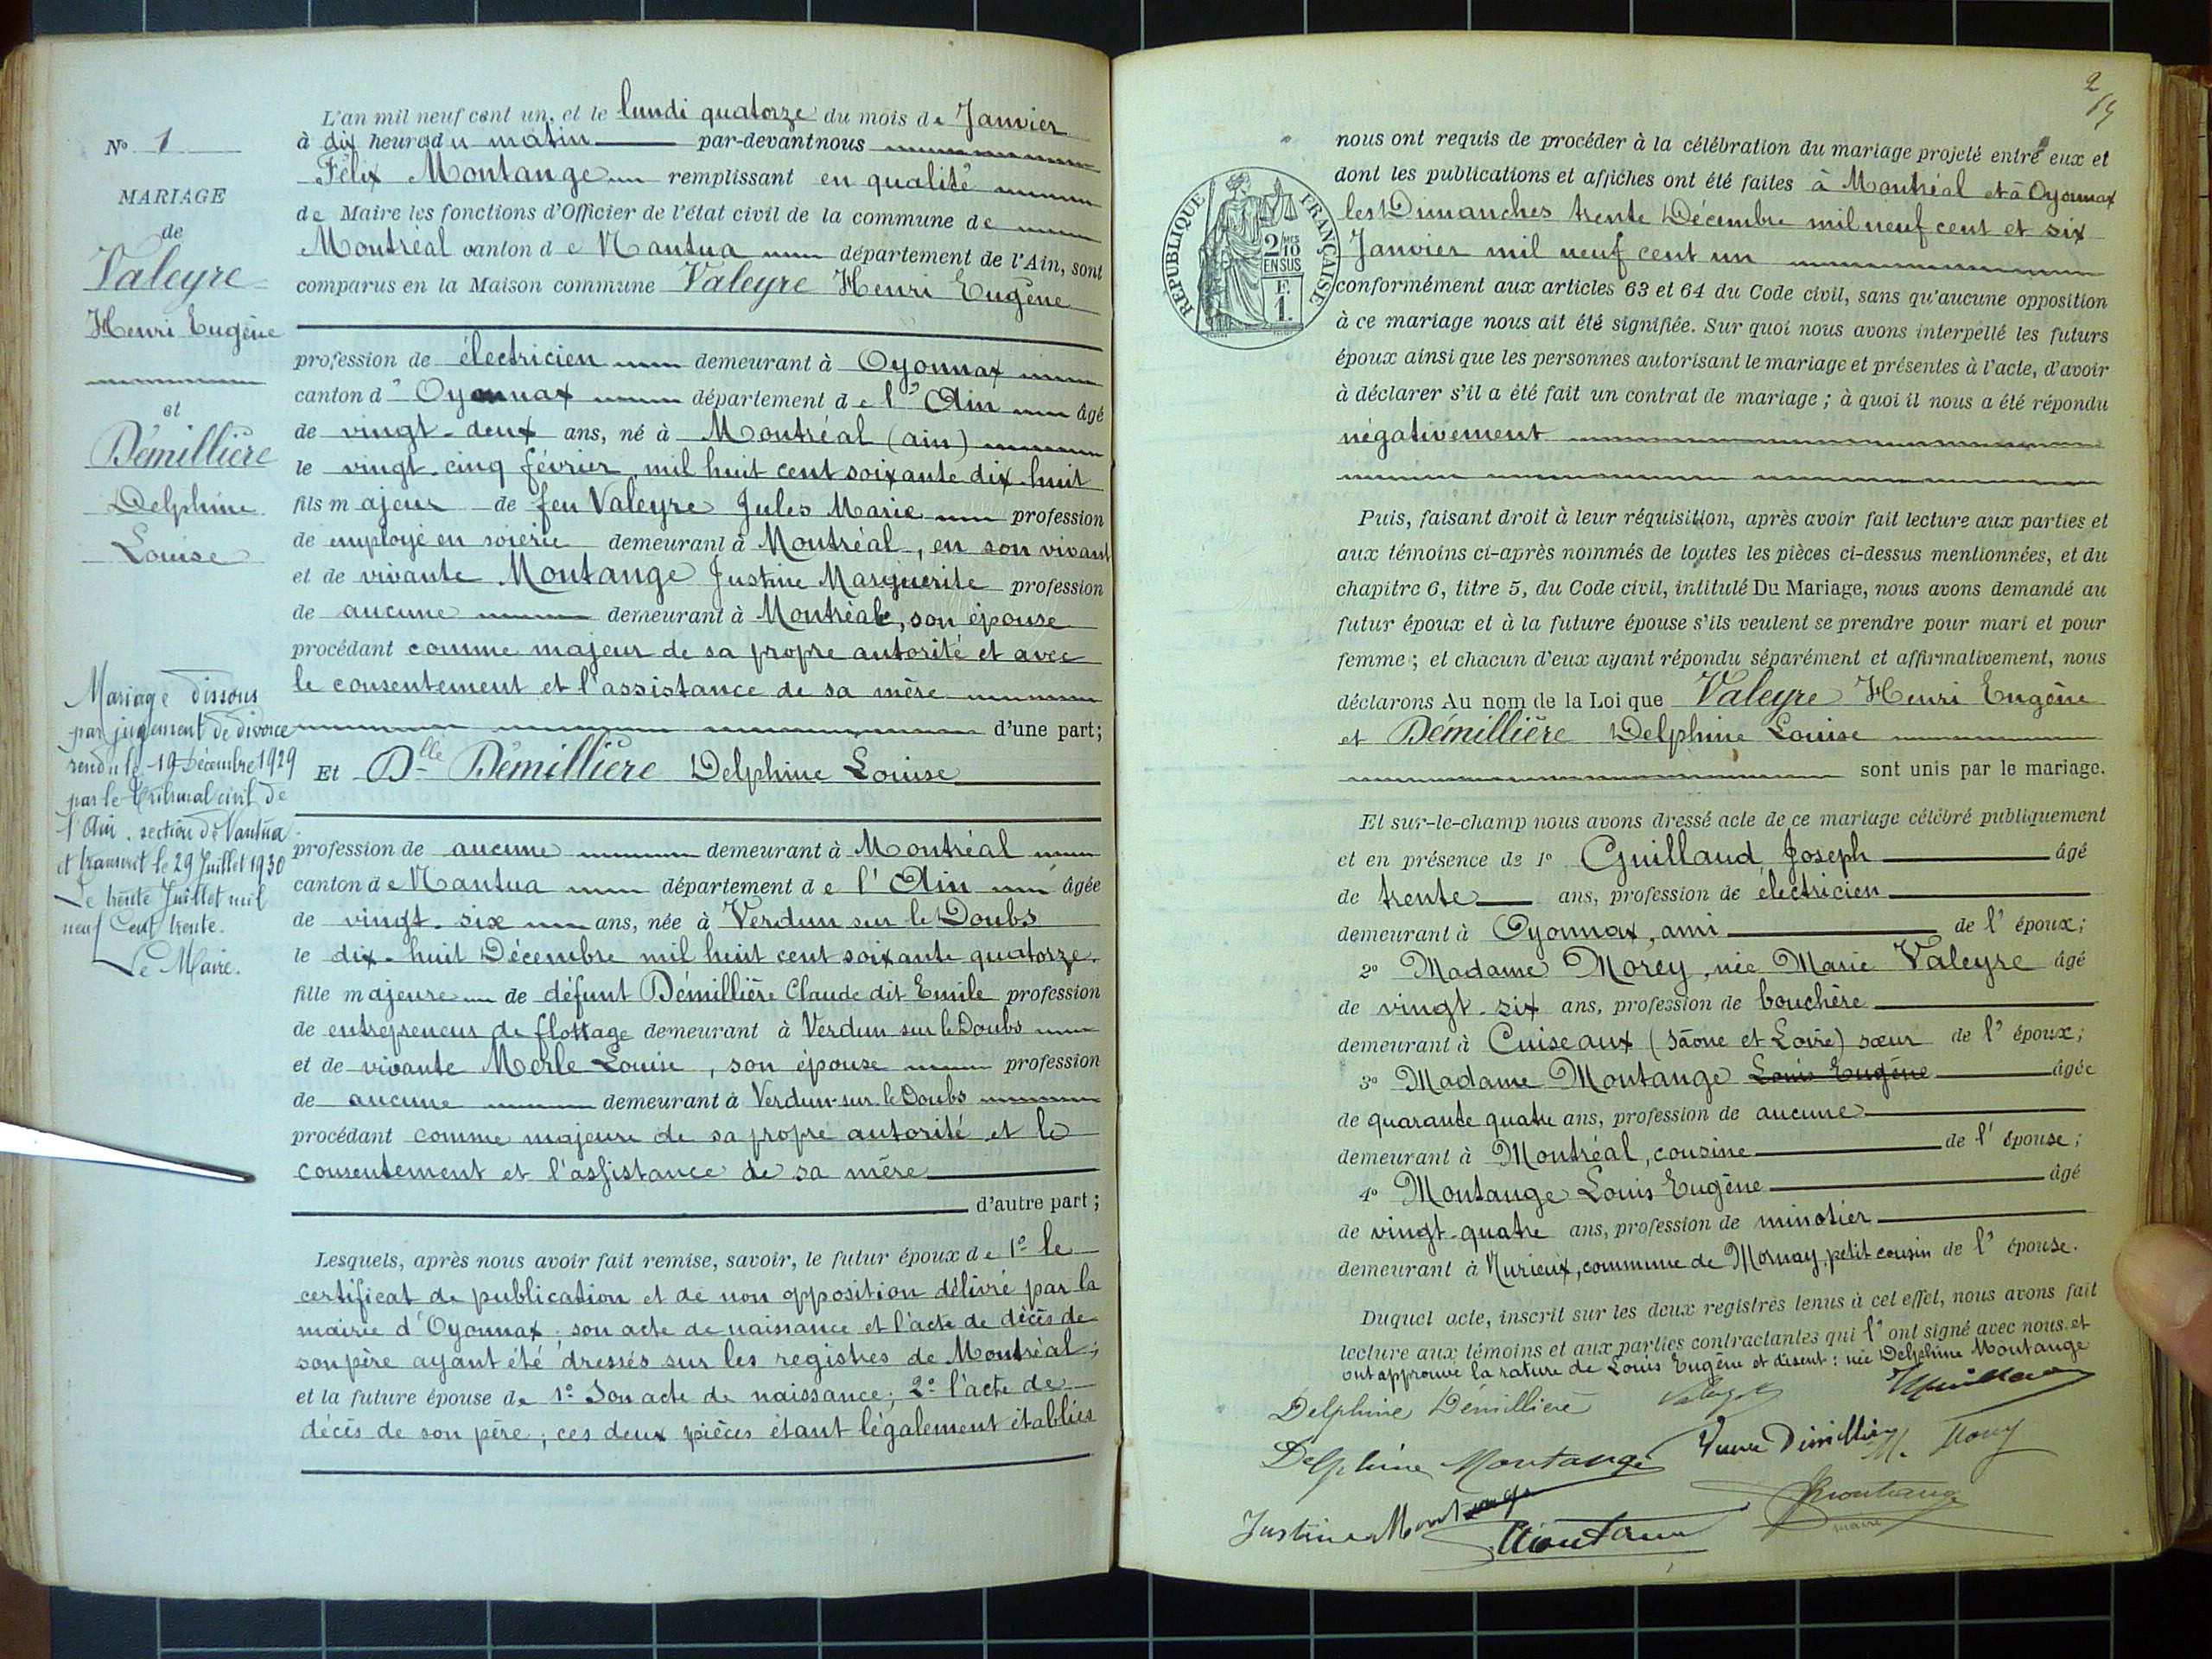 N° 1
MARIAGE
de
Valeyre
Henri Eugène
et
Démillière
Delphine
Louise
Mariage dissous
par jugement de divorce
rendu le 19 Décembre 1929
par le Tribunal civil de
l'Ain. section de Nantua
et transcrit le 29 Juillet 1930
Le trente Juillet mil
neuf Cent trente.
Le Maire.
L'an mil neuf cent un, et le lundi quatorze du mois de Janvier
à dix heures du matin par-devant nous
Félix Montange remplissant en qualité
de Maire les fonctions d'Officier de l'état civil de la commune de
Montréal canton de Nantua département de l'Ain, sont
comparus en la Maison commune Valeyre Henri Eugène
profession de électricien demeurant à Oyonnax
canton d'Oyonnax département de l'Ain âgé
de vingt-deux ans, né à Montréal (ain)
le vingt-cinq février mil huit cent soixante dix-huit
fils majeur de feu Valeyre Jules Marie profession
de employé en soierie demeurant à Montréal, en son vivant
et de vivante Montange Justine Marguerite profession
de aucune demeurant à Montréal, son épouse
procédant comme majeur de sa propre autorité et avec
le consentement et l'assistance de sa mère
d'une part;
Et Dlle Démillière Delphine Louise
profession de aucune demeurant à Montréal
canton de Nantua département de l'Ain âgée
de vingt-six ans, née à Verdun sur le Doubs
le dix-huit Décembre mil huit cent soixante quatorze.
fille majeure de défunt Démillière Claude dit Emile profession
de entrepreneur de flottage demeurant à Verdun sur le Doubs
et de vivante Merle Louise, son épouse profession
de aucune demeurant à Verdun-sur-le Doubs
procédant comme majeure de sa propre autorité et le
consentement et l'assistance de sa mère
d'autre part;
Lesquels, après nous avoir fait remise, savoir, le futur époux de 1° le
certificat de publication et de non opposition délivré par la
mairie d'Oyonnax; son acte de naissance et l'acte de décès de
son père ayant été dressés sur les registres de Montréal;
et la future épouse de 1° Son acte de naissance; 2° l'acte de
décès de son père; ces deux pièces étant légalement établies
2
RÉPUBLIQUE FRANÇAISE
2/10
EN SUS
F.
1.
nous ont requis de procéder à la célébration du mariage projeté entre eux et
dont les publications et affiches ont été faites à Montréal et à Oyonnax
les Dimanches trente Décembre mil neuf cent et six
Janvier mil neuf cent un
conformément aux articles 63 et 64 du Code civil, sans qu'aucune opposition
à ce mariage nous ait été signifiée. Sur quoi nous avons interpellé les futurs
époux ainsi que les personnes autorisant le mariage et présentes à l'acte, d'avoir
à déclarer s'il a été fait un contrat de mariage; à quoi il nous a été répondu
négativement
Puis, faisant droit à leur réquisition, après avoir fait lecture aux parties et
aux témoins ci-après nommés de toutes les pièces ci-dessus mentionnées, et du
chapitre 6, titre 5, du Code civil, intitulé Du Mariage, nous avons demandé au
futur époux et à la future épouse s'ils veulent se prendre pour mari et pour
femme; et chacun d'eux ayant répondu séparément et affirmativement, nous
déclarons Au nom de la Loi que Valeyre Henri Eugène
et Démillière Delphine Louise
sont unis par le mariage.
Et sur-le-champ nous avons dressé acte de ce mariage célébré publiquement
et en présence de 1° Guillaud Joseph âgé
de trente ans, profession de électricien
demeurant à Oyonnax, ami de l'époux;
2° Madame Morey, née Marie Valeyre âgé
de vingt-six ans, profession de bouchère
demeurant à Cuiseaux (Saône et Loire) sœur de l'époux;
3° Madame Montange Louis Eugène âgée
de quarante quatre ans, profession de aucune
demeurant à Montréal, cousine de l'épouse;
4° Montange Louis Eugène âgé
de vingt-quatre ans, profession de minotier
demeurant à Nurieux, commune de Mornay, petit cousin de l'épouse.
Duquel acte, inscrit sur les deux registres tenus à cet effet, nous avons fait
lecture aux témoins et aux parties contractantes qui l'ont signé avec nous et
ont approuvé la rature de Louis Eugène et disent: née Delphine Montange
Delphine Démillière
Delphine Montange Veuve Démillière
Justine Montange
maire